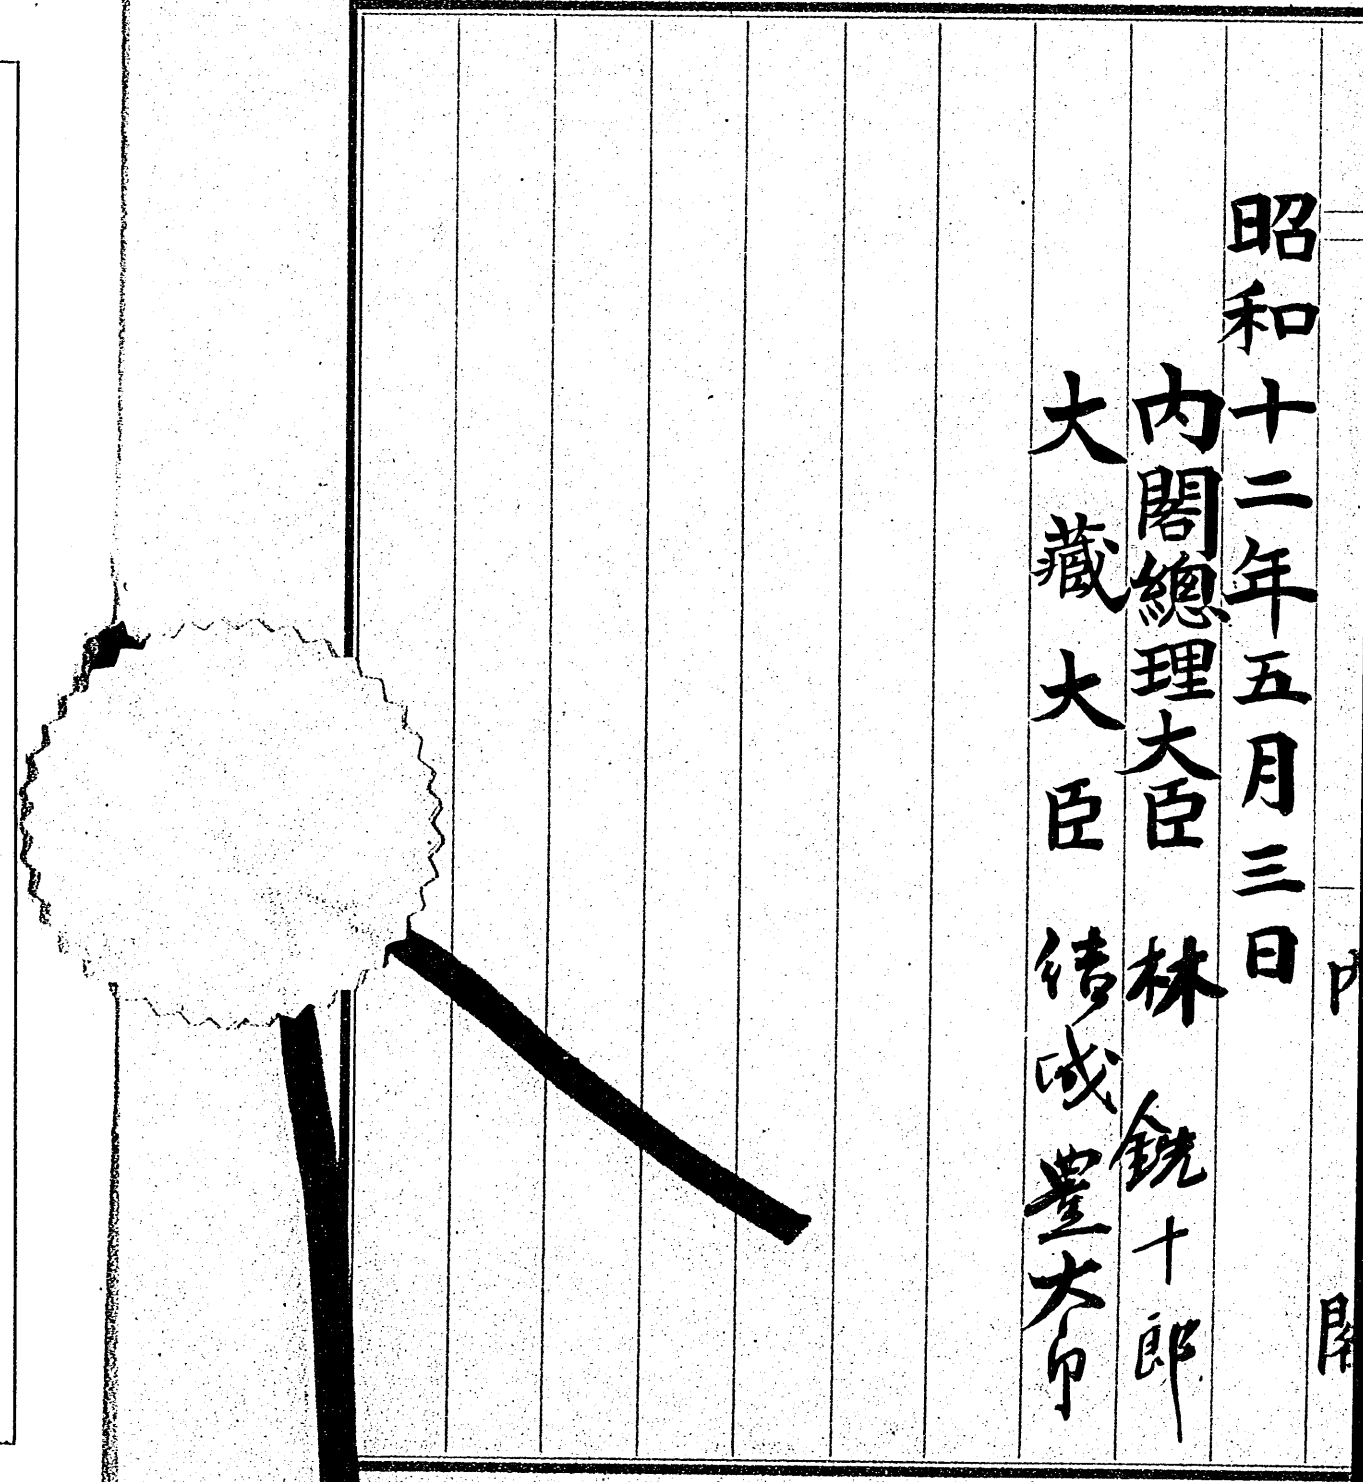 昭和十二年五月三日
内閣總理大臣 林 銑十郎
大藏大臣 結城豊太郎
内閣